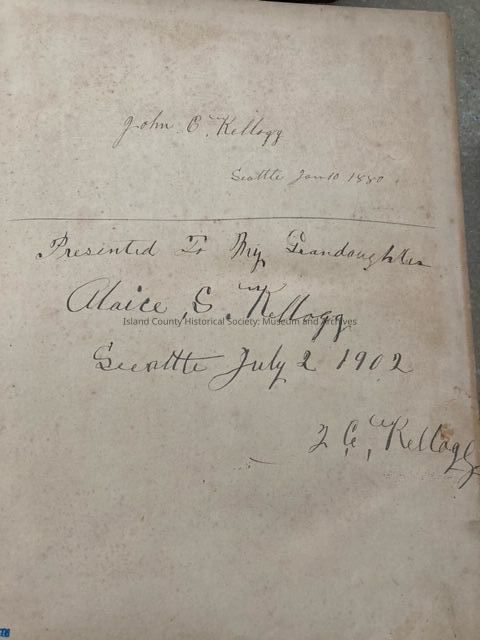 John C. Kellogg
Seattle Jan 10 1880
Presented To My Grandaughter
Alaice S. Kellogg
Island County Historical Society: Museum and Archives
Seeattle July 2 1902
J C, Kellogg